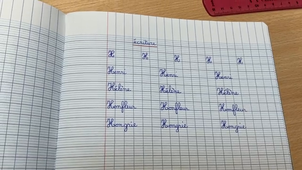 écriture
H H H H H
Henri Henri Henri
Hélène Hélène Hélène
Honfleur Honfleur Honfleur
Hongrie Hongrie Hongrie